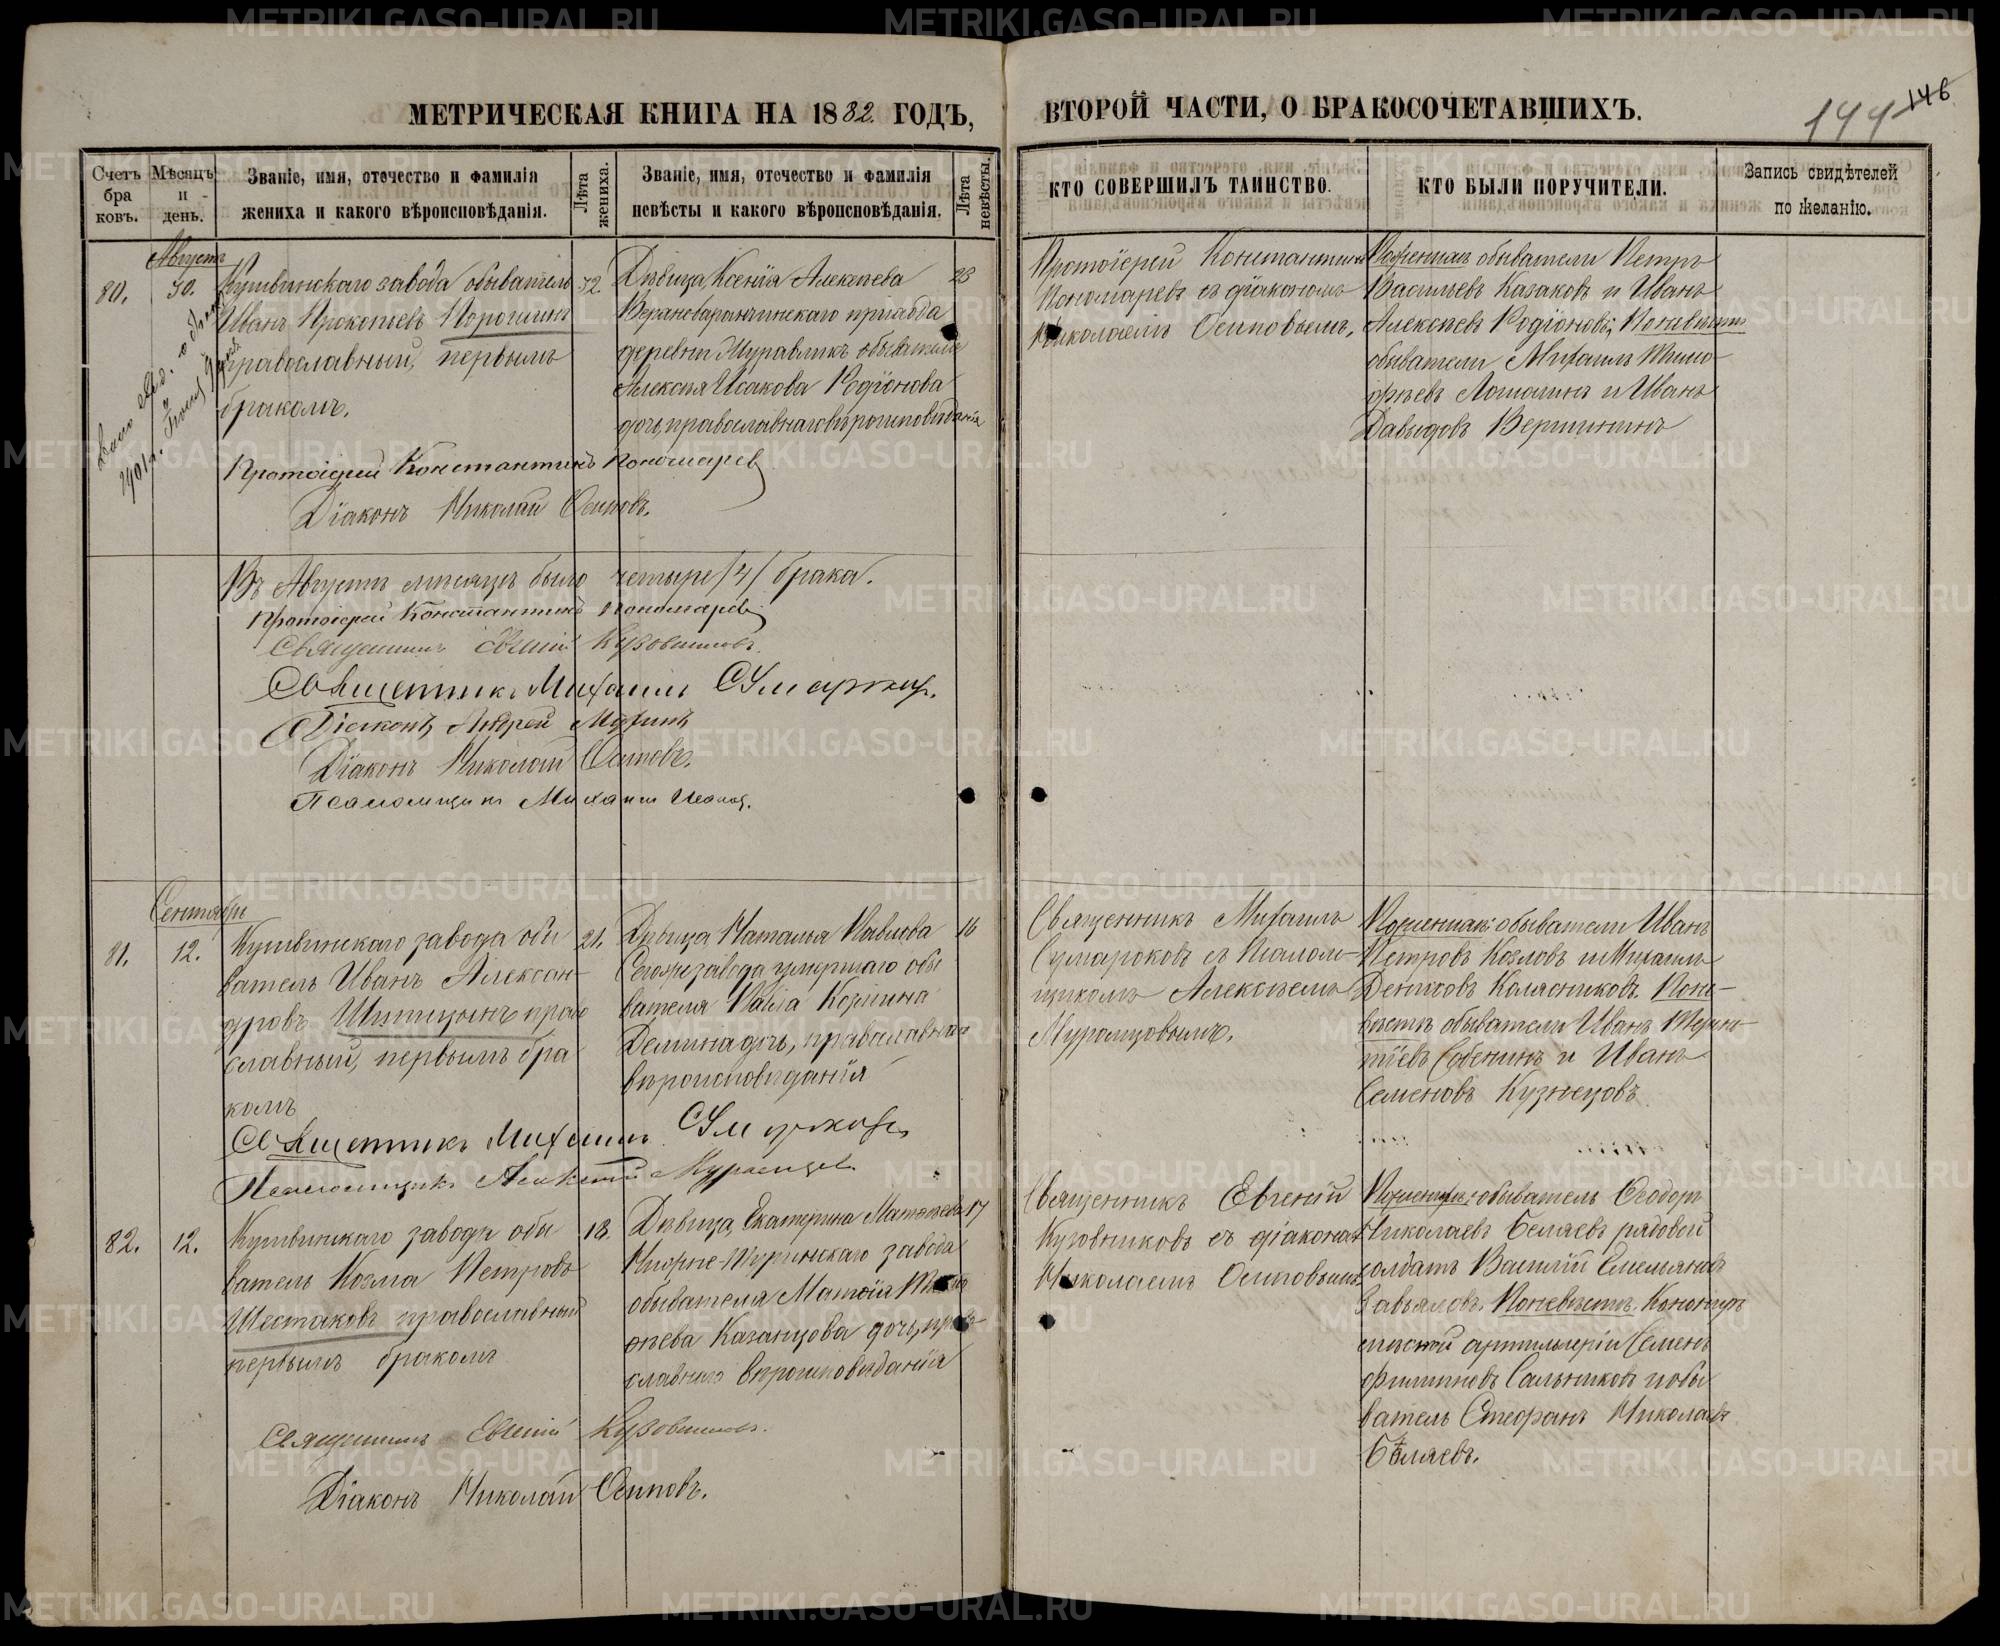 МЕТРИЧЕСКАЯ КНИГА НА 1882. ГОДЪ,
ВТОРОЙ ЧАСТИ, О БРАКОСОЧЕТАВШИХЪ.
144 146
Счетъ бра ковъ.
Мѣсяцъ и день.
Званіе, имя, отечество и фамилія
жениха и какого вѣроисповѣданія.
Лѣта жениха.
Званіе, имя, отечество и фамилія
невѣсты и какого вѣроисповѣданія.
Лѣта невѣсты.
КТО СОВЕРШИЛЪ ТАИНСТВО.
КТО БЫЛИ ПОРУЧИТЕЛИ.
Запись свидѣтелей
по желанію.
Августъ
80.
30.
Кушвинскаго завода обыватель
Иванъ Прокопьевъ Порошинъ
православный, первымъ
бракомъ.
Дѣвица, Ксенія Алексѣева
Верхнебаранчинскаго прихода
деревни Журавликъ обывателя
Алексѣя Исакова Родіонова
дочь, православнаго вѣроисповѣданія
23
Протоіерей Константинъ
Пономаревъ съ діакономъ
Николаемъ Осиповымъ.
По женихѣ обыватели Петръ
Васильевъ Казаковъ и Иванъ
Алексѣевъ Родіоновъ; По невѣстѣ
обыватели Михаилъ Тимо-
фѣевъ Лошагинъ и Иванъ
Давыдовъ Вершининъ
1901 г.
Протоіерей Константинъ Пономаревъ
Діаконъ Николай Осиповъ.
Въ Августѣ мѣсяцѣ было четыре /4/ брака.
Протоіерей Константинъ Пономаревъ
Священникъ Евгеній Кузовниковъ.
Священникъ Михаилъ Сумароковъ.
Діаконъ Андрей
Діаконъ Николай Осиповъ.
Псаломщикъ Михаилъ
Сентябрь
81.
12.
Кушвинскаго завода обы
ватель Иванъ Алексан-
дровъ Шипицынъ право
славный, первымъ бра
комъ
21.
Дѣвица Наталья Павлова
Сегоже завода умершаго обы
вателя Павла Козмина
Демина дочь, православнаго
вѣроисповѣданія
16
Священникъ Михаилъ
Сумароковъ съ Псалом-
щикомъ Алексѣемъ
Муромцовымъ.
По женихѣ: обыватели Иванъ
Петровъ Козловъ и Михаилъ
Денисовъ Колясниковъ. По не-
вѣстѣ обыватели Иванъ Терен-
тіевъ Собенинъ и Иванъ
Семеновъ Кузнецовъ
Священникъ Михаилъ Сумароковъ
Псаломщикъ Алексѣй Муромцевъ
82.
12.
Кушвинскаго завода обы
ватель Козма Петровъ
Шестаковъ православный
первымъ бракомъ
18.
Дѣвица, Екатерина Матѳѣева
Нижне-Туринскаго завода
обывателя Матѳія
Казанцова дочь, право-
славнаго вѣроисповѣданія
17
Священникъ Евгеній
Кузовниковъ съ діакономъ
Николаемъ Осиповымъ
По женихѣ: обыватель Ѳедоръ
Николаевъ Беляевъ рядовой
солдатъ Василій Емельяновъ
Завьяловъ. По невѣстѣ: Канониръ
артиллеріи Семенъ
Филиповъ Сальниковъ и обы
ватель Стефанъ Николаевъ
Бѣляевъ.
Священникъ Евгеній Кузовниковъ.
Діаконъ Николай Осиповъ.
METRIKI.GASO-URAL.RU